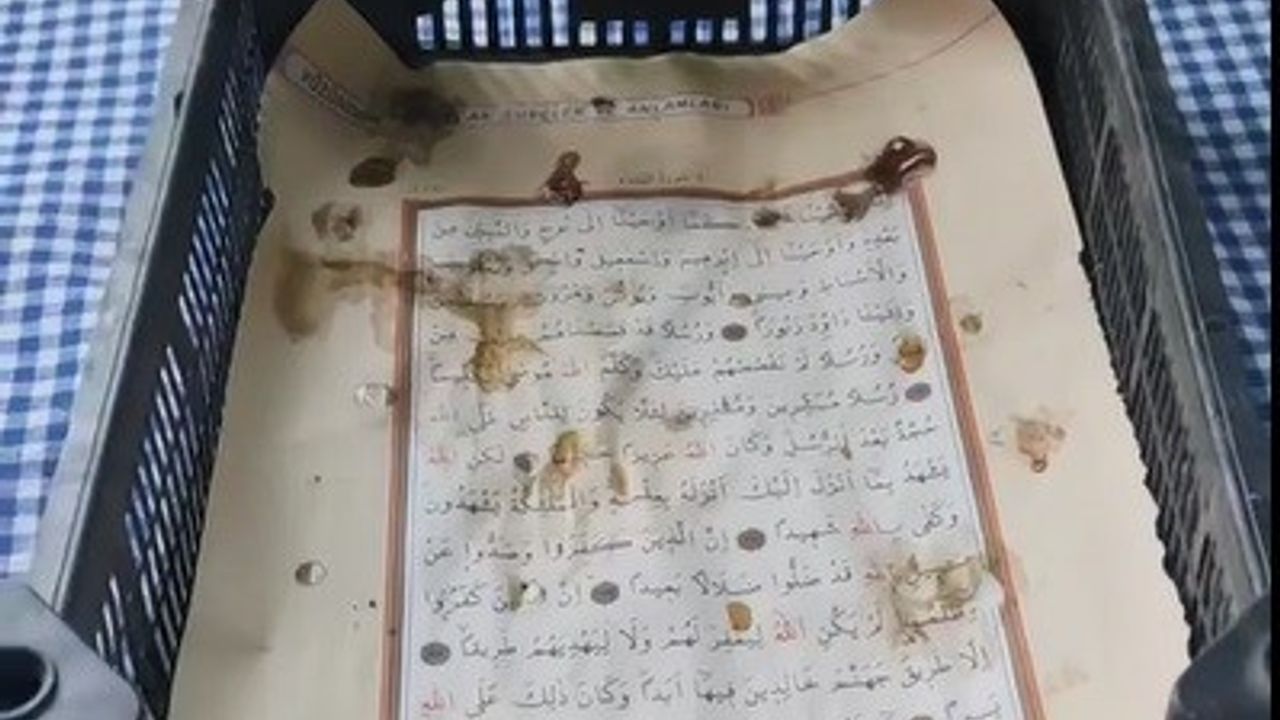 ANLAMLARI
كَمَا أَوْحَيْنَا إِلَى نُوحٍ وَالنَّبِيِّينَ مِنْ
بَعْدِهِ وَأَوْحَيْنَا إِلَى إِبْرٰهِيمَ وَإِسْمٰعِيلَ
وَالْأَسْبَاطِ وَأَيُّوبَ وَيُونُسَ وَهٰرُونَ
دَاوُدَ زَبُورًا وَرُسُلًا قَدْ مِنْ
وَرُسُلًا لَمْ نَقْصُصْهُمْ عَلَيْكَ وَكَلَّمَ اللهُ
رُسُلًا مُبَشِّرِينَ وَمُنْذِرِينَ لِئَلَّا يَكُونَ لِلنَّاسِ عَلَى اللهِ
حُجَّةٌ بَعْدَ الرُّسُلِ وَكَانَ اللهُ عَزِيزًا لٰكِنِ اللهُ
يَشْهَدُ بِمَا أَنْزَلَ إِلَيْكَ أَنْزَلَهُ بِعِلْمِهِ وَالْمَلٰئِكَةُ يَشْهَدُونَ
وَكَفَى بِاللهِ شَهِيدًا إِنَّ الَّذِينَ كَفَرُوا وَصَدُّوا عَنْ
قَدْ ضَلُّوا ضَلَالًا بَعِيدًا إِنَّ كَفَرُوا
لَمْ يَكُنِ اللهُ لِيَغْفِرَ لَهُمْ وَلَا لِيَهْدِيَهُمْ طَرِيقًا
إِلَّا طَرِيقَ جَهَنَّمَ خَالِدِينَ فِيهَا أَبَدًا وَكَانَ ذٰلِكَ عَلَى اللهِ